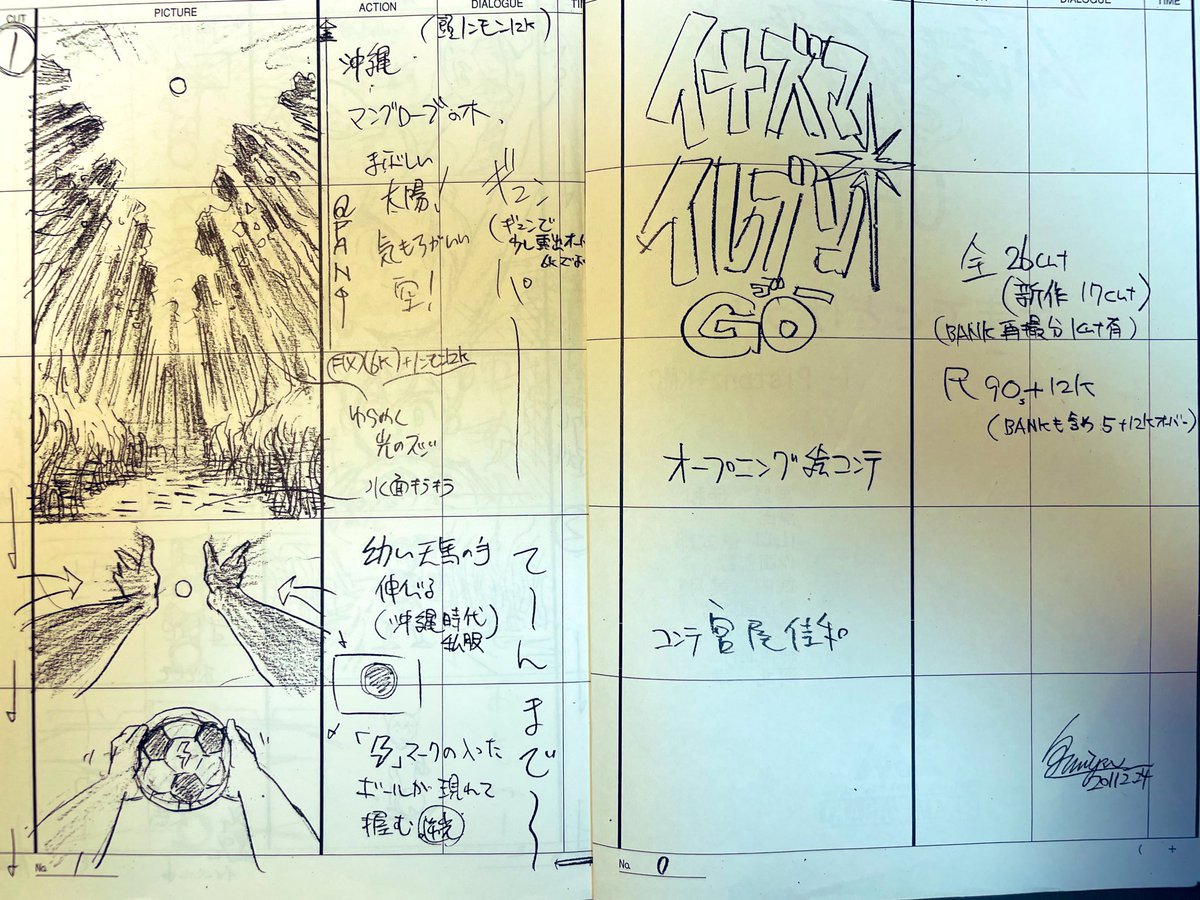 CUT
PICTURE
ACTION
DIALOGUE
TI
1
沖縄
マングローブの木、
まぶしい
太陽!
気もちがいい
空!
@PAN
ギュン
(ギュンで
パ
(FIX)(6K)
ゆらめく
光のスジ
水面キラキラ
幼い天馬の手
伸びる
(沖縄時代)
私服
てーん
まで
「 」マークの入った
ボールが現れて
握む
No. 1
DIALOGUE
TIME
イナズマ
イレブン
GO
全26cut
(新作17cut)
(BANK再撮分1cut有)
尺90s+12K
(BANKも含め5+12Kオーバー)
オープニング絵コンテ
コンテ宮尾佳和
2011.2.24
No. 0